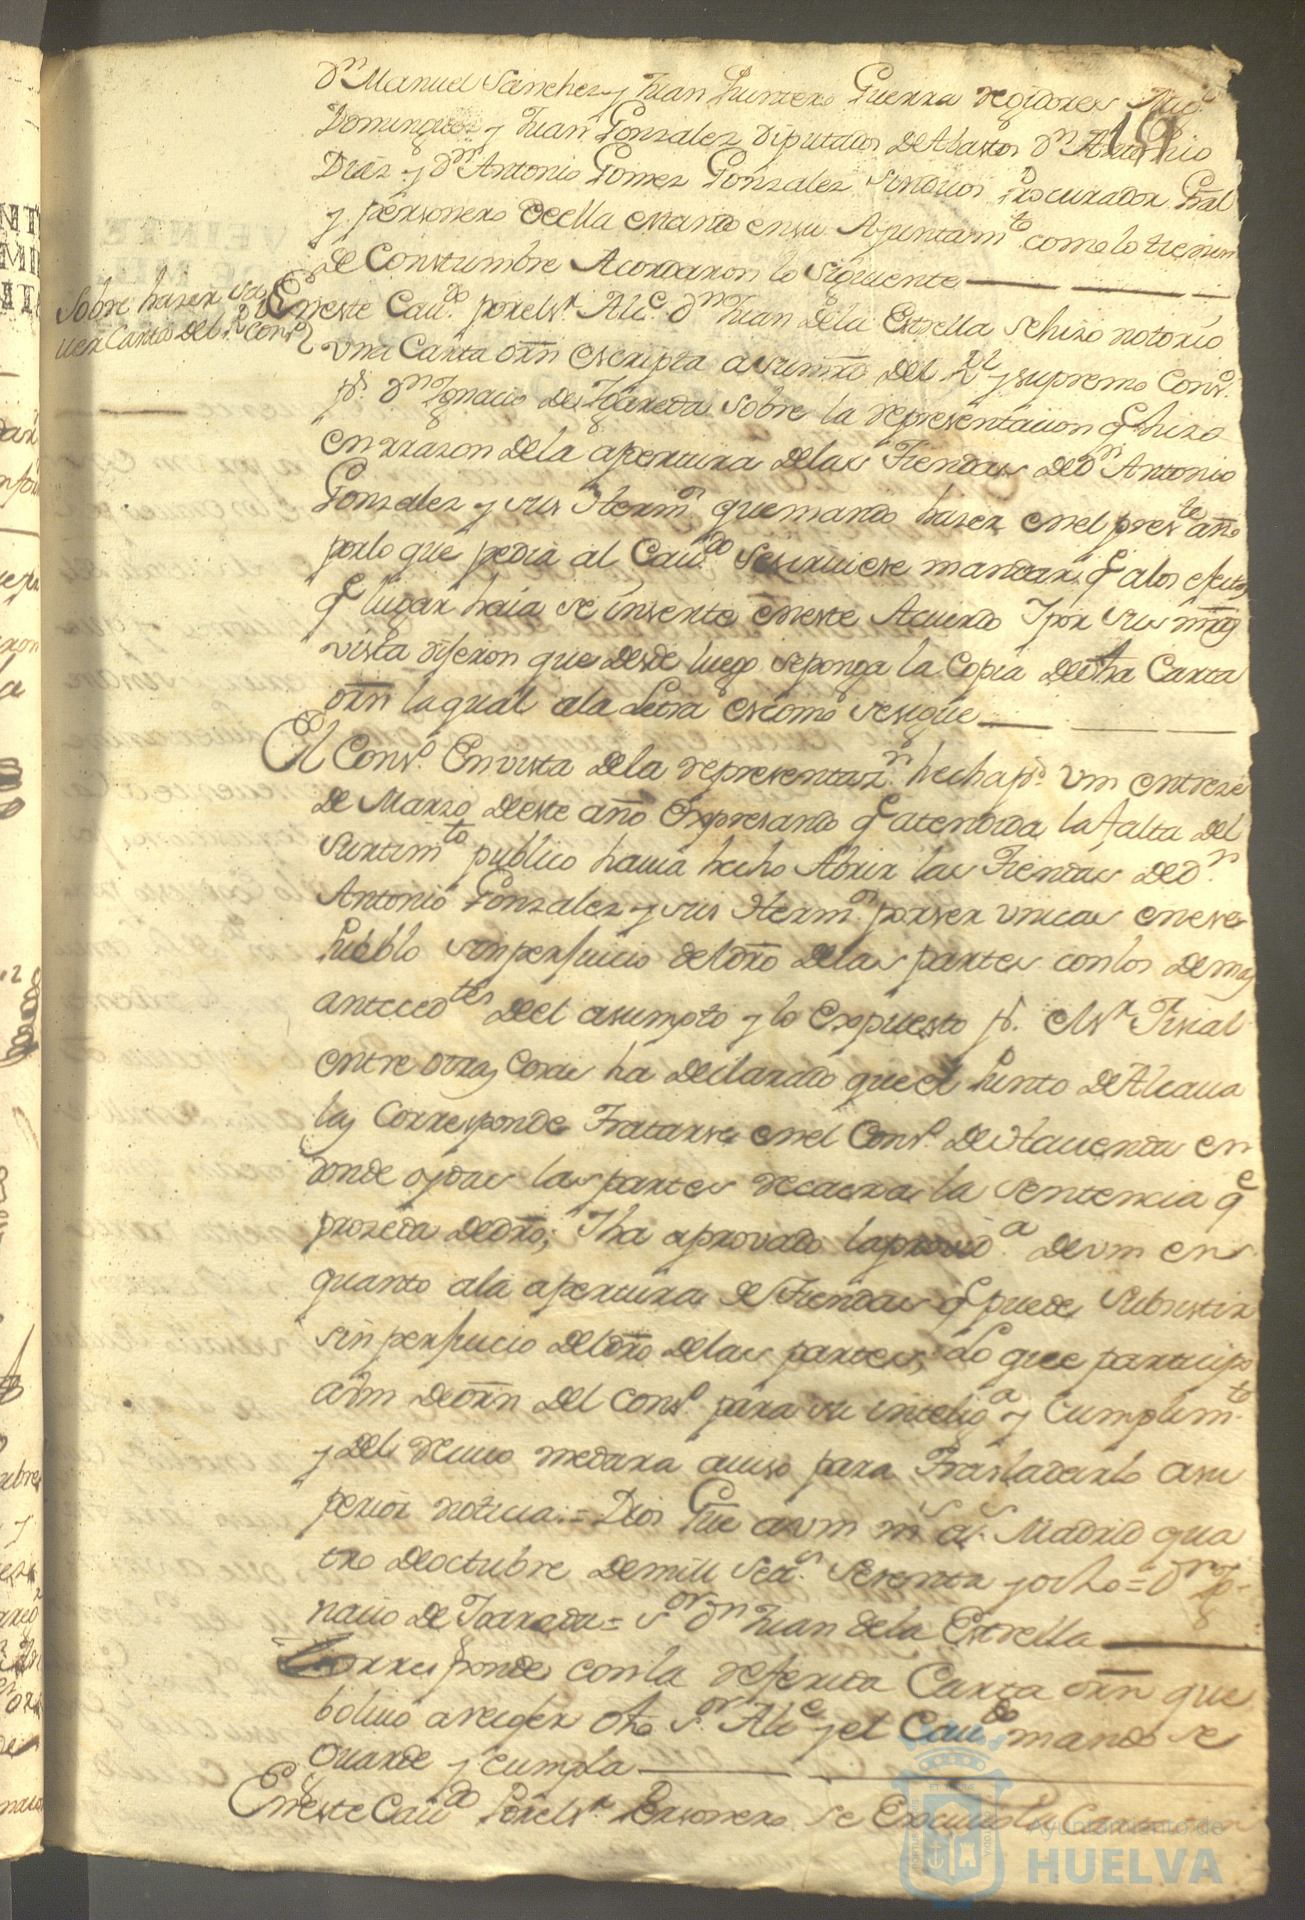 Dn Manuel Sanchez y Juan Quintero Guerra Regidores
Dominguez y Juan Gonzalez Diputados de Abastos Dn Antonio
19
Diaz y Dn Antonio Gomez Gonzalez Sindicos Procurador Gral
y personero de ella estando en su Ayuntamto como lo tienen
de Constumbre Acordaron lo siguiente
Sobre haser
Carta del Rl Consº
En este Cauº por el Sr Alce Dn Juan de la Estrella se hizo notorio
vna Carta orn escripta a su mrd del Rl y supremo Consº
pr Dn Ygnacio de Ygareda sobre la representacion q hizo
en rrazon de la apertura de las Tiendas de Dn Antonio
Gonzalez y sus Hermos que mando haser en el preste año
por lo que pedia al Caudo se siruiese mandar q a los efectos
q lugar haia se inserte en este Acuerdo Y por sus mrds
vista dijeron que desde luego se ponga la Copia de dha Carta
orn la qual a la Letra es como se sigue
El Consº En vista de la representazn hecha pr vm en treze
de Marzo de este año Expresando q atendida la falta del
surtimto publico hauia hecho Abrir las Tiendas de Dn
Antonio Gonzalez y sus Hermos por ser vnicas en ese
Pueblo sin perjuicio del dro de las partes con los demas
antecedtes del asumpto y lo Expuesto pr el Sr Fiscal
entre otras cosas ha declarado que el Punto de Alcaua
las Corresponde Tratarse en el Consº de Hacienda en
donde oydas las partes recaera la sentencia q
prozeda de dro; Y ha aprovado la provida de vm en
quanto a la apertura de Tiendas q puede subsistir
sin perjuicio del dro de las partes; Lo que participo
a vm de orn del Consº para su inteliga y Cumplimto
y del reciuo me dara auiso para Trasladarlo a su
perior noticia = Dios Gue a vm ms as Madrid qua
tro de octubre de mill setos sesenta y ocho = Dn Yg
nacio de Ygareda = Sor Dn Juan de la Estrella
Corresponde con la referida Carta orn que
bolvio a recoger dho Sor Alce y el Caudo mando se
Guarde y cumpla
En este Caudo Por el Sr Personero se
Ayuntamiento de
HUELVA